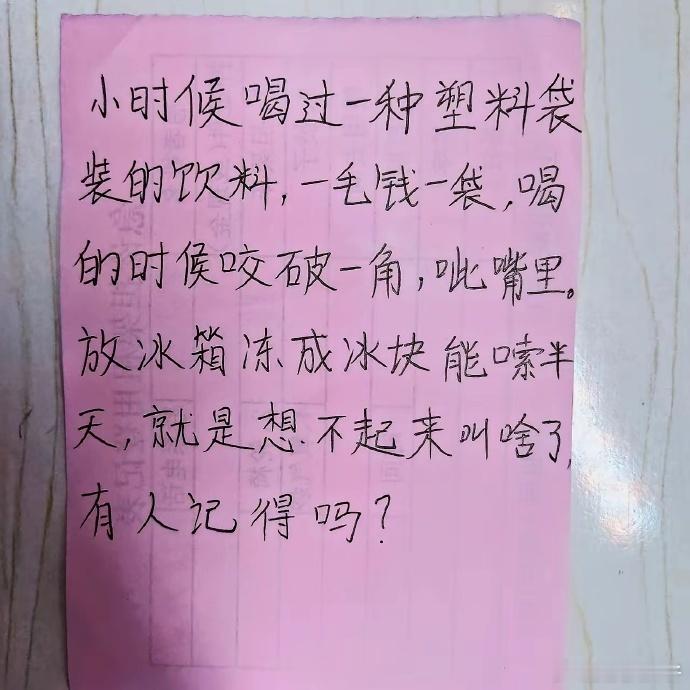 小时候喝过一种塑料袋
装的饮料，一毛钱一袋，喝
的时候咬破一角，呲嘴里。
放冰箱冻成冰块能嗦半
天，就是想不起来叫啥了，
有人记得吗？